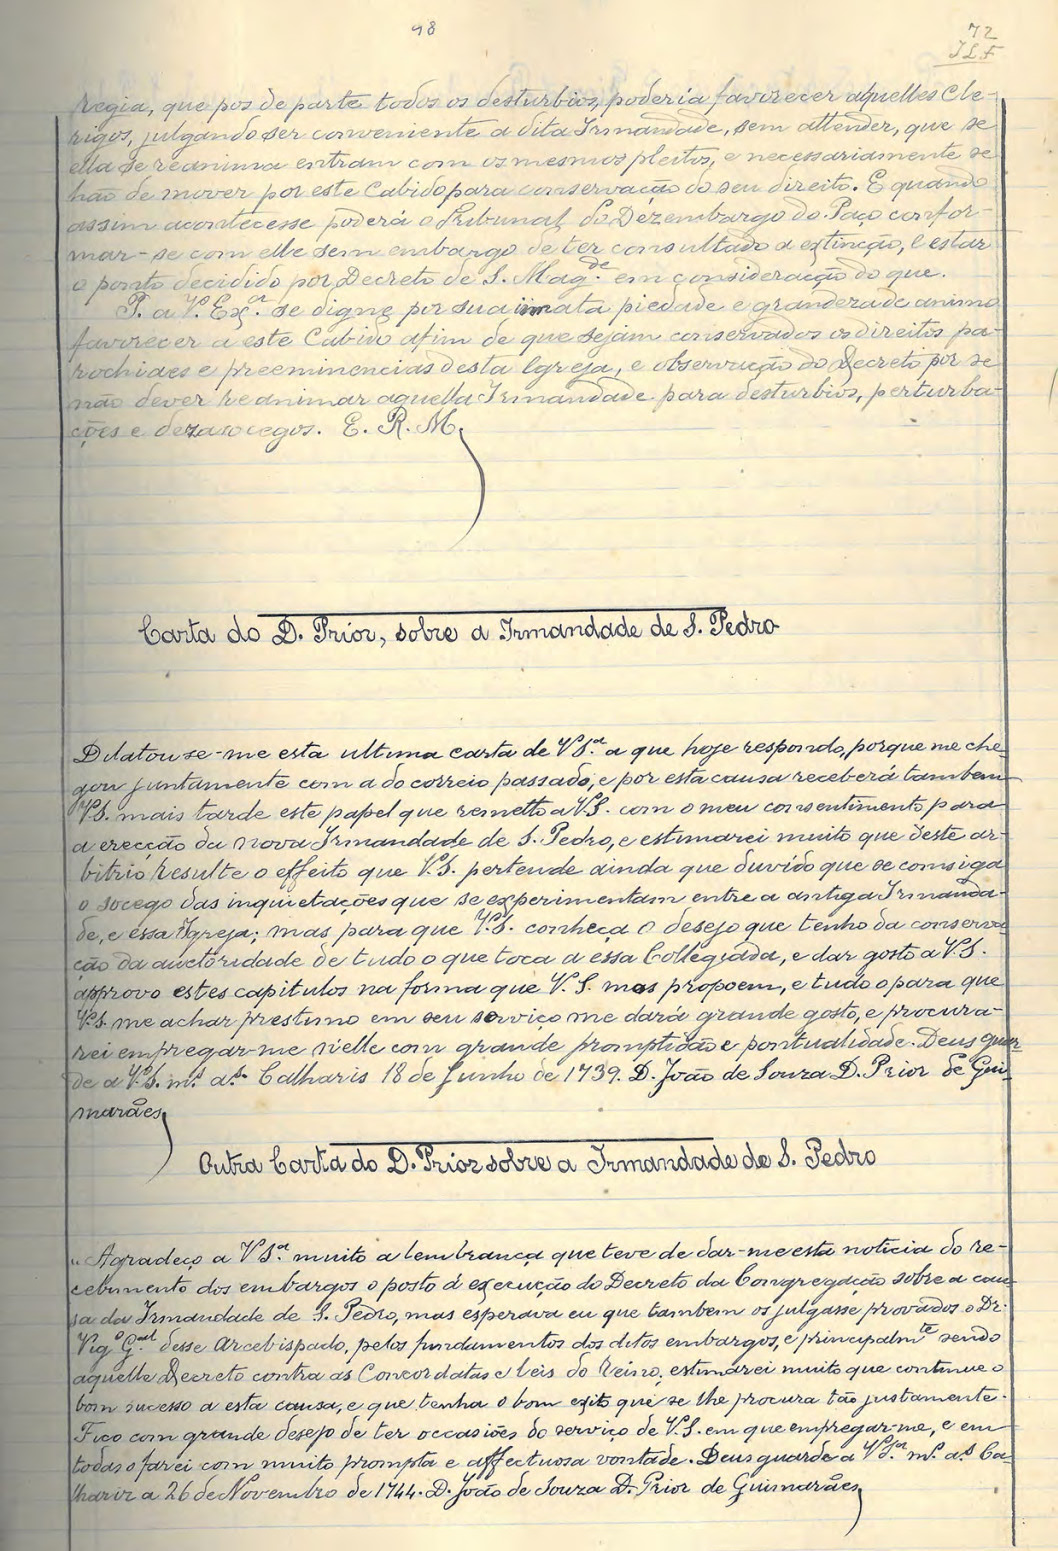 48
72
JLF
regia, que pos de parte todos os desturbios, poderia favorecer aquelles Cle-
rigos, julgando ser conveniente a dita Irmandade, sem attender, que se
ella se reanima entram com os mesmos pleitos, e necessariamente se
hão de mover por este Cabido para conservação do seu direito. E quando
assim acontecesse poderá o Tribunal do Dezembargo do Paço confor-
mar-se com elle sem embargo de ter consultado a extincção, e estar
o ponto decidido por Decreto de S. Mag.de em consideracção do que.
P. a V. Ex.a se digne por sua innata piedade e grandeza de animo
favorecer a este Cabido afim de que sejam conservados os direitos pa-
rochiaes e preeminencias desta Igreja, e observação do Decreto por se
não dever reanimar aquella Irmandade para desturbios, perturba-
ções e dezasocegos. E. R. M.
Carta do D. Prior, sobre a Irmandade de S. Pedro
Dilatou-se-me esta ultima carta de V S.a a que hoje respondo, porque me che-
gou juntamente com a do correio passado, e por esta causa receberá tambem
V.S. mais tarde este papel que remetto a V.S. com o meu consentimento para
a erecção da nova Irmandade de S. Pedro, e estimarei muito que deste ar-
bitrio resulte o effeito que V.S. pertende ainda que duvido que se comsiga
o socego das inquietações que se experimentam entre a antiga Irmanda-
de, e essa Igreja; mas para que V.S. conheça o desejo que tenho da conserva-
ção da auctoridade de tudo o que toca a essa Collegiada, e dar gosto a V.S.
approvo estes capitulos na forma que V. S. mos propoem, e tudo o para que
V.S. me achar prestimo em seu serviço me dará grande gosto, e procura-
rei empregar-me n'elle com grande promptidão e pontualidade. Deus guar-
de a V.S. m.s a.s Calhariz 18 de Junho de 1739. D. João de Souza D. Prior de Gui-
marães
Outra Carta do D. Prior sobre a Irmandade de S. Pedro
"Agradeço a V S.a muito a lembrança que teve de dar-me esta noticia do re-
cebimento dos embargos o posto á execução do Decreto da Congregação sobre a cau-
sa da Irmandade de S. Pedro, mas esperava eu que tambem os julgasse provados o Dr.
Vig.o G.al desse Arcebispado, pelos fundamentos dos ditos embargos, e principalm.te sendo
aquelle Decreto contra as Concordatas e leis do Reino, estimarei muito que continue o
bom sucesso a esta causa, e que tenha o bom exito que se lhe procura tão justamente.
Fico com grande desejo de ter occasiões do serviço de V.S. em que empregar-me, e em
todas o farei com muito prompta e affectuosa vontade. Deus guarde a V S.a m.s a.s Ca-
lhariz a 26 de Novembro de 1744. D. João de Souza D. Prior de Guimarães